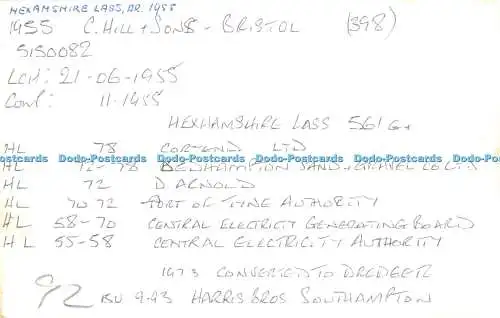 HEXAMSHIRE LASS, DR. 1955
1955 C. HILL + SONS - BRISTOL (398)
5150082
LCH: 21-06-1955
COML: 11-1955
HEXHAMSHIRE LASS 561 G+
HL 78 LTD
HL 72-78 SAND + GRAVEL CO LTD
Dodo-Postcards Dodo-Postcards Dodo-Postcards Dodo-Postcards Dodo-Postcards
HL 72 D ARNOLD
HL 70 72 PORT OF TYNE AUTHORITY
HL 58-70 CENTRAL ELECTRICITY GENERATING BOARD
HL 55-58 CENTRAL ELECTRICITY AUTHORITY
1973 CONVERTED TO DREDGER
92 BU 9-93 HARRIS BROS SOUTHAMPTON